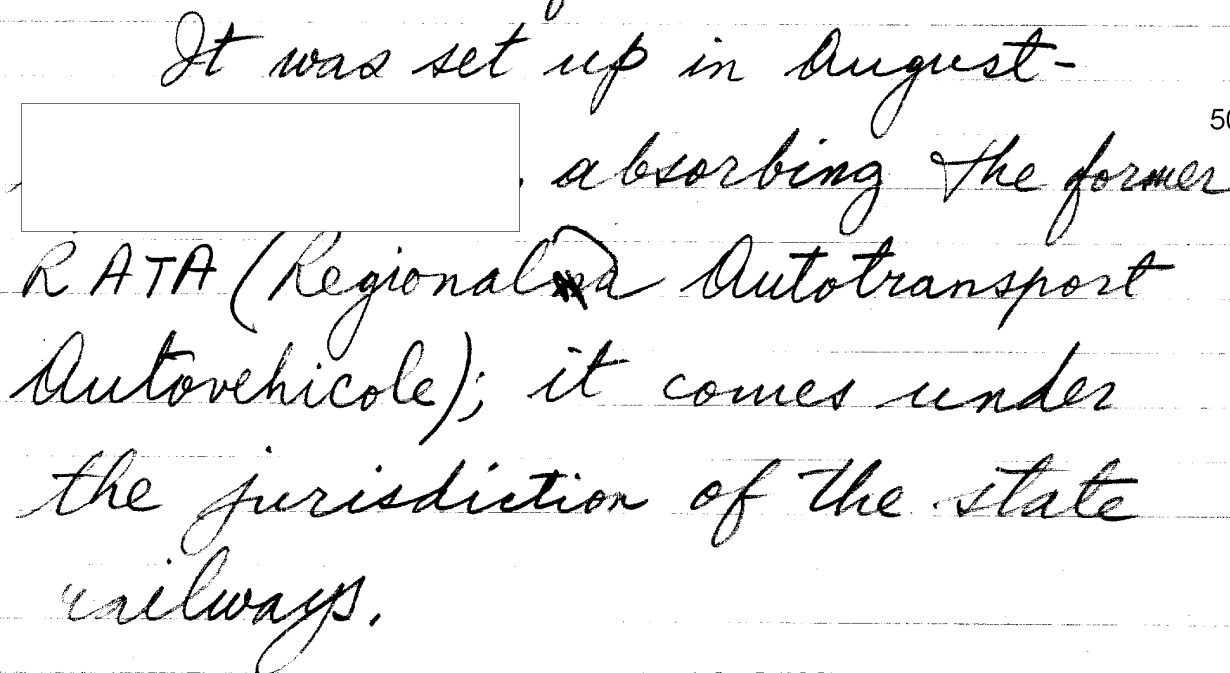 It was set up in August-
50
. absorbing the former
RATA (Regionala Autotransport
Autovehicole); it comes under
the jurisdiction of the state
railways.